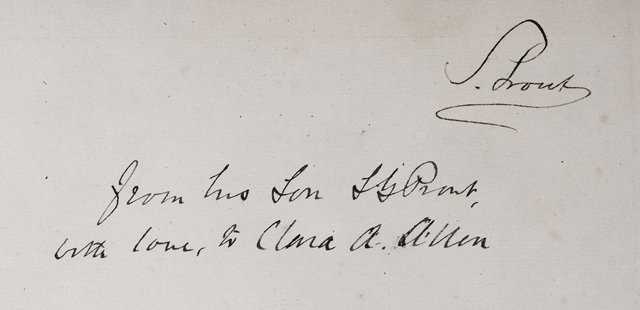 S. Prout
from his Son S G Prout,
with love, to Clara A. Allen